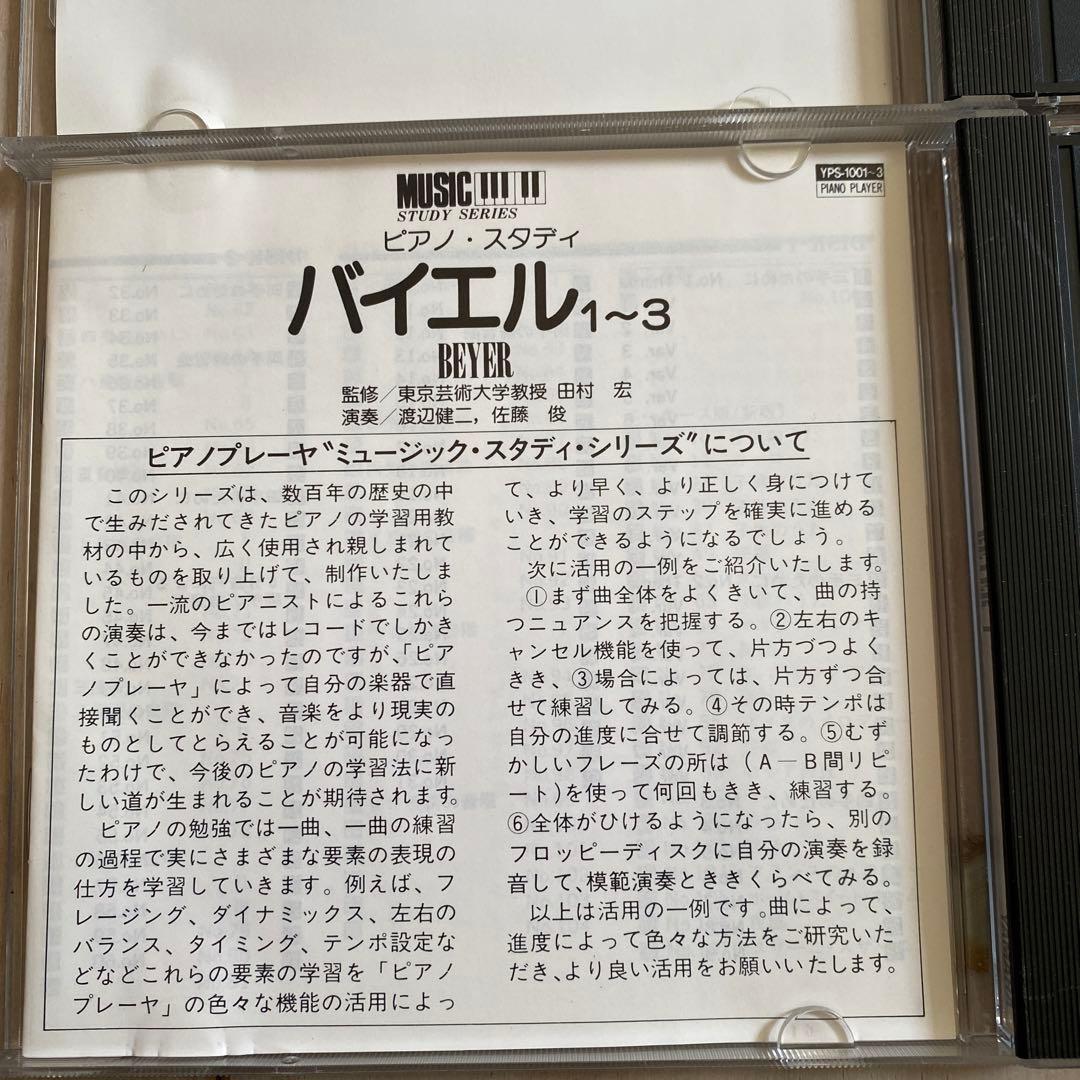 MUSIC
STUDY SERIES
YPS-1001~3
PIANO PLAYER
ピアノ・スタディ
バイエル1〜3
BEYER
監修／東京芸術大学教授 田村 宏
演奏／渡辺健二，佐藤 俊
ピアノプレーヤ“ミュージック・スタディ・シリーズ”について
このシリーズは、数百年の歴史の中
で生みだされてきたピアノの学習用教
材の中から、広く使用され親しまれて
いるものを取り上げて、制作いたしま
した。一流のピアニストによるこれら
の演奏は、今まではレコードでしかき
くことができなかったのですが、「ピア
ノプレーヤ」によって自分の楽器で直
接聞くことができ、音楽をより現実の
ものとしてとらえることが可能になっ
たわけで、今後のピアノの学習法に新
しい道が生まれることが期待されます。
ピアノの勉強では一曲、一曲の練習
の過程で実にさまざまな要素の表現の
仕方を学習していきます。例えば、フ
レージング、ダイナミックス、左右の
バランス、タイミング、テンポ設定な
どなどこれらの要素の学習を「ピアノ
プレーヤ」の色々な機能の活用によっ
て、より早く、より正しく身につけて
いき、学習のステップを確実に進める
ことができるようになるでしょう。
次に活用の一例をご紹介いたします。
①まず曲全体をよくきいて、曲の持
つニュアンスを把握する。②左右のキ
ャンセル機能を使って、片方づつよく
きき、③場合によっては、片方ずつ合
せて練習してみる。④その時テンポは
自分の進度に合せて調節する。⑤むず
かしいフレーズの所は（A—B間リピ
ート）を使って何回もきき、練習する。
⑥全体がひけるようになったら、別の
フロッピーディスクに自分の演奏を録
音して、模範演奏とききくらべてみる。
以上は活用の一例です。曲によって、
進度によって色々な方法をご研究いた
だき、より良い活用をお願いいたします。